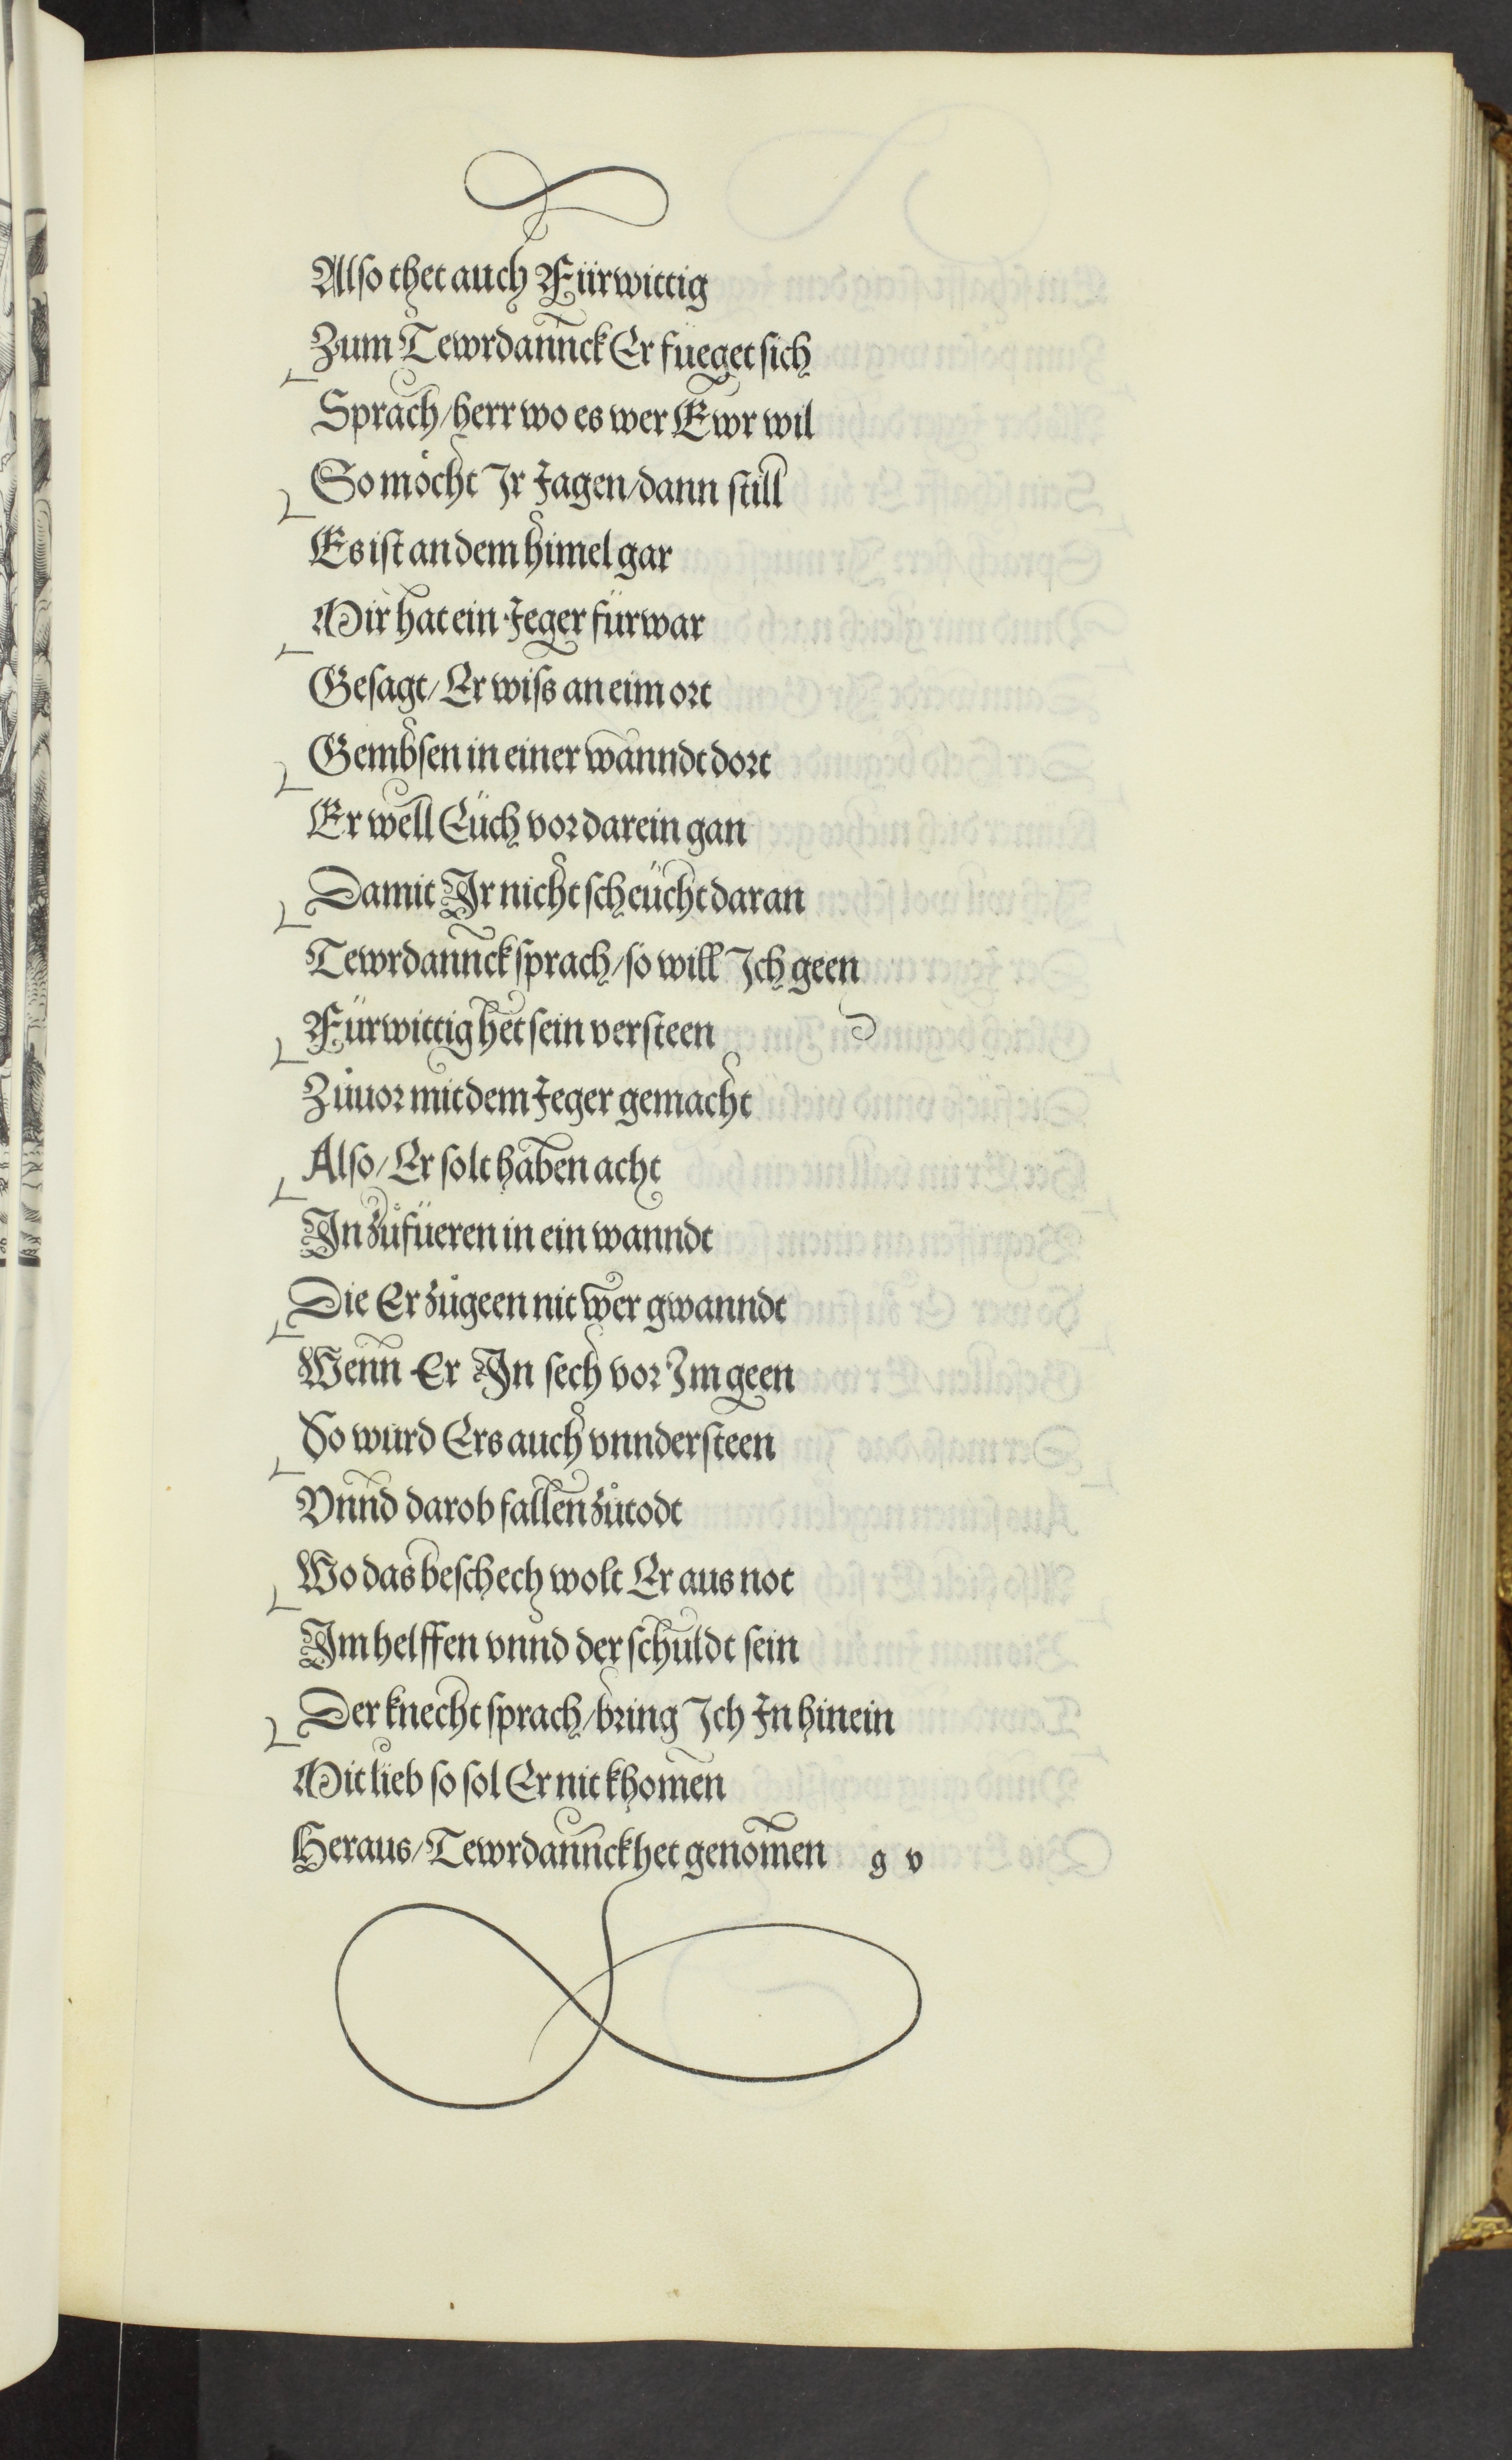 Also thet auch Fürwittig
Zum Tewrdannck Er füeget sich
Sprach/herr wo es wer Ewr wil
So möcht Ir Jagen/dann still
Es ist an dem himel gar
Mir hat ein Jeger fürwar
Gesagt/Er wiss an eim ort
Gembsen in einer wanndt dort
Er well Eüch vor darein gan
Damit Ir nicht scheücht daran
Tewrdannck sprach/so will Ich geen
Fürwittig het sein versteen
Zůuor mit dem Jeger gemacht
Also/Er solt haben acht
In zůfüeren in ein wanndt
Die Er zůgeen nit wer gwanndt
Wenn Er In sech vor Im geen
So wurd Ers auch vnndersteen
Vnnd darob fallen zůtodt
Wo das beschech wolt Er aus not
Im helffen vnnd der schuldt sein
Der knecht sprach/bring Ich In hinein
Mit lieb so sol Er nit khomen
Heraus/Tewrdannck het genomen g v